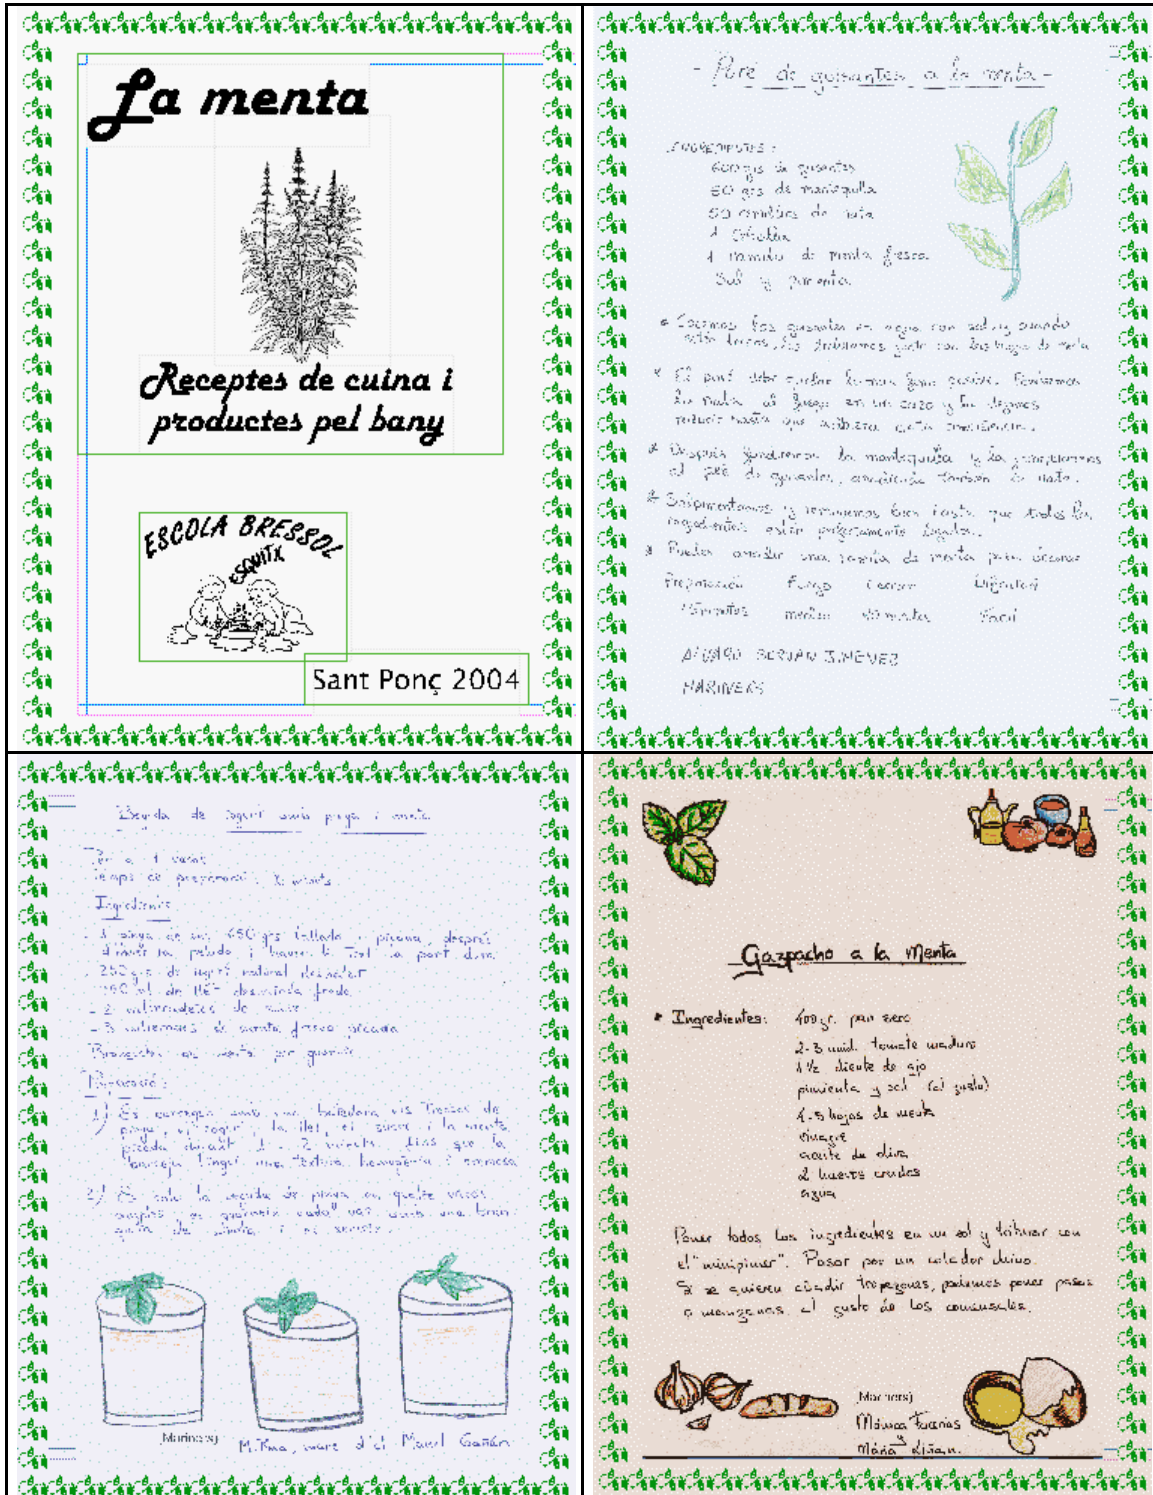 La menta
Receptes de cuina i
productes pel bany
ESCOLA BRESSOL
ESQUITX
Sant Ponç 2004
- Puré de guisantes a la menta -
INGREDIENTES:
600 grs de guisantes
60 grs de mantequilla
50 de nata
1
1 ramito de menta fresca
Sal y pimienta
* Cocemos los guisantes en agua con sal y cuando
estén tiernos, los trituramos junto con las hojas de menta
* El puré debe quedar lo mas fino posible. Ponemos
la nata al fuego en un cazo y la dejamos
reducir hasta que adquiera cierta consistencia.
* Después fundiremos la mantequilla y la
al puré de guisantes, añadiendo también la nata.
* Salpimentamos y removemos bien hasta que todos los
ingredientes estén perfectamente ligados.
* Puedes añadir una ramita de menta para decorar
Preparación Fuego Cocción Dificultad
minutos medio minutos Fácil
ALVARO JIMENEZ
MARINERS
Beguda de iogurt amb pinya i menta
Per a 4 vasos
Temps de preparació: minuts
Ingredients
- 1 pinya de 650 grs tallada i picada, després
d'haver la pelada i haver-li tret la part dura
250 grs de iogurt natural desnatat
ml de llet desnatada freda
- 2 cullerades de sucre
- 3 cullerades de menta fresca picada
de menta per guarnir
Preparació:
1) Es barregen amb una batedora els trossos de
pinya, el iogurt, la llet, el sucre i la menta
picada durant 1 - 2 minuts, fins que la
barreja tingui una textura homogènia i cremosa
2) Es cola la beguda de pinya en quatre vasos
amplis, es guarneix cada vas amb una bran
de menta i es serveix.
Mariners)
M. Rosa, mare d'el Manel Gañán
Gazpacho a la Menta
* Ingredientes: 400 gr. pan seco
2-3 unid. tomate maduro
1 1/2 diente de ajo
pimienta y sal (al gusto)
4-5 hojas de menta
vinagre
aceite de oliva
2 huevos crudos
agua
Poner todos los ingredientes en un bol y triturar con
el "minipimer". Pasar por un colador chino.
Si se quieren añadir tropezones, podemos poner pasas
o manzanas al gusto de los comensales.
Mariners)
Mónica
y
Maria